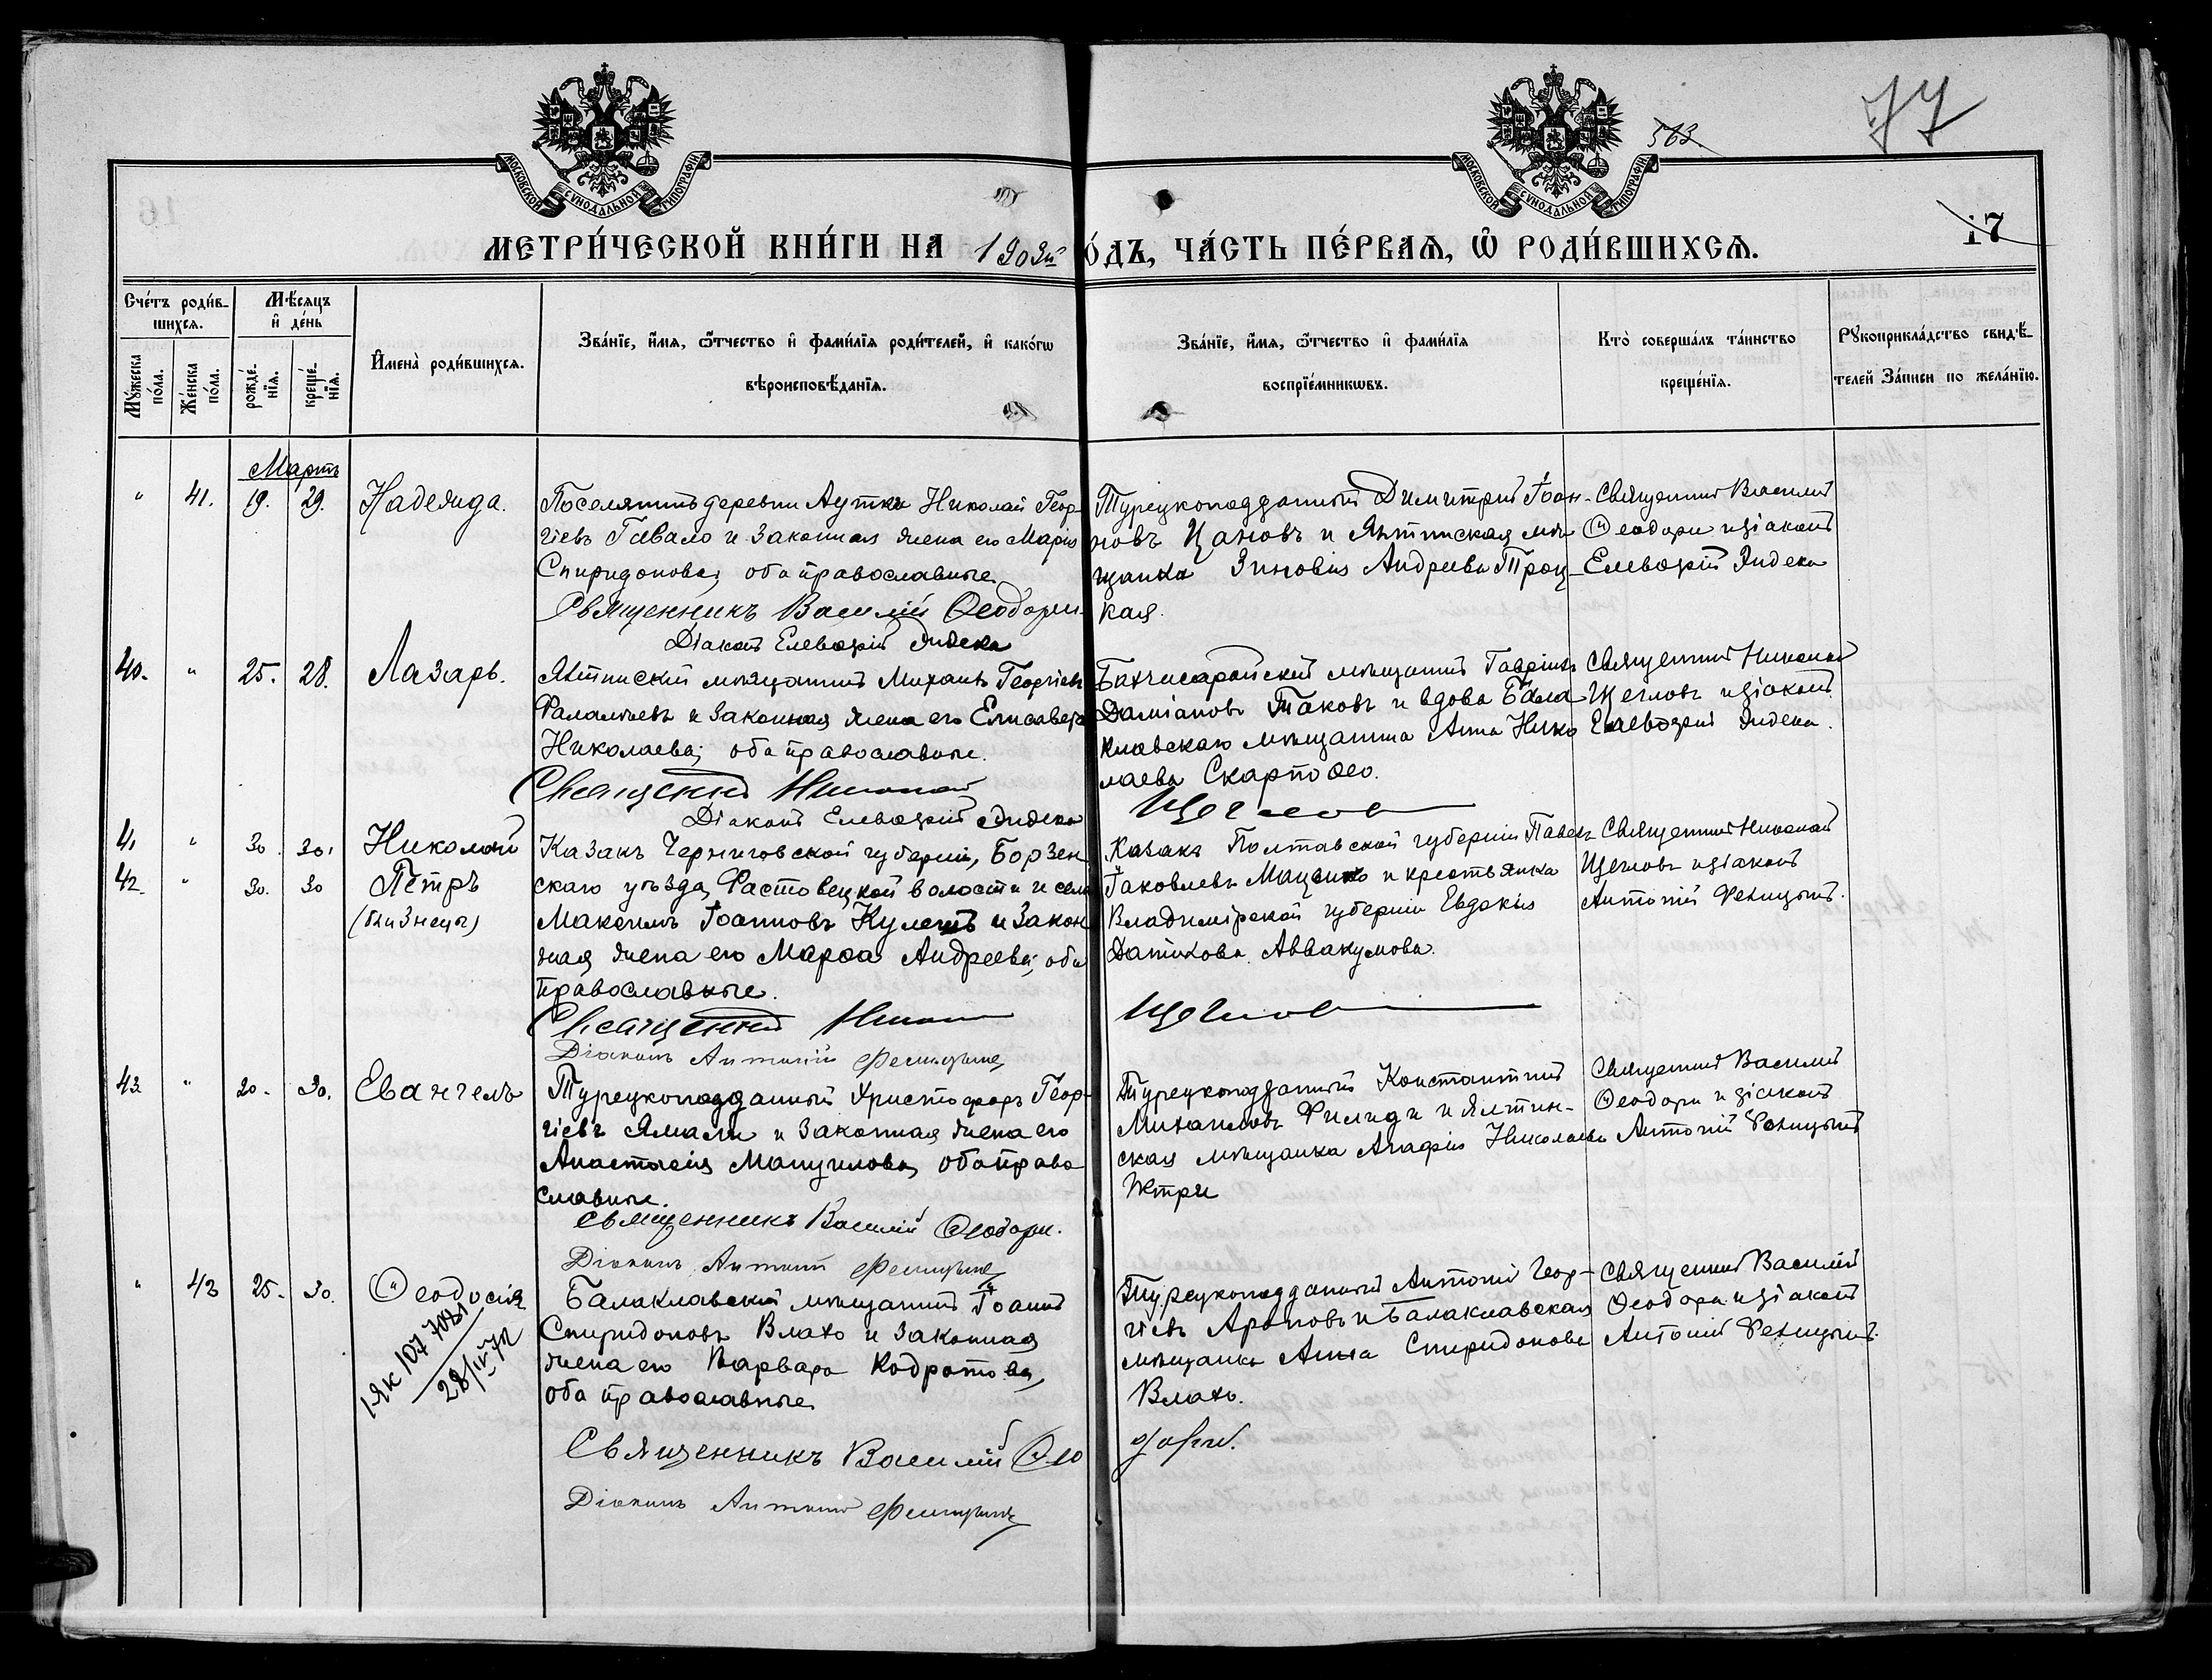 МОСКОВСКОЙ СУНОДАЛЬНОЙ ТИПОГРАФІИ
МОСКОВСКОЙ СУНОДАЛЬНОЙ ТИПОГРАФІИ
563
77
17
МЕТРИ́ЧЕСКОЙ КНИ́ГИ НА 1903й
О́ДЪ, ЧА́СТЬ ПЕ́РВАЯ, Ѡ҆ РОДИ́ВШИХСЯ.
Сче́тъ роди́в-
шихся.
Мѣ́сяцъ
и҆ де́нь
Мꙋ́жеска
по́ла.
Же́нска
по́ла.
рожде́-
нїя.
креще́-
нїя.
И҆мена̀ роди́вшихся.
Зва́нїе, и҆́мя, ѻ҆́тчество и҆ фами́лїя роди́телей, и҆ како́гѡ
вѣроисповѣ́данїя.
Зва́нїе, и҆́мя, ѻ҆́тчество и҆ фами́лїя
воспрїе́мникѡвъ.
Кто̀ соверша́лъ та́инство
креще́нїя.
Рꙋкоприкла́дство свидѣ́-
телей За́писи по жела́нїю.
Мартъ
" 41. 19. 29. Надежда.
Поселянинъ деревни Аутки Николай Геор-
гіевъ Гавало и законная жена его Марія
Спиридонова, оба православные
Священникъ Василій Ѳеодори
Діаконъ Елевѳерій Эндека
Турецкоподданный Димитрій Іоан-
новъ Цановъ и Ялтинская мѣ-
щанка Зиновія Андреева Троц-
кая.
Священникъ Василій
Ѳеодори и діаконъ
Елевѳерій Эндека
40. " 25. 28. Лазарь.
Ялтинскій мѣщанинъ Михаилъ Георгіевъ
Фалалѣевъ и законная жена его Елисавета
Николаева, оба православные.
Священникъ Николай
Щегловъ
Діаконъ Елевѳерій Эндека
Бахчисарайскій мѣщанинъ Гавріилъ
Даміановъ Таковъ и вдова Бала-
клавскаго мѣщанина Анна Нико-
лаева Скарпо
Священникъ Николай
Щегловъ и діаконъ
Елевѳерій Эндека.
41 " 30. 30. Николай
42. " 30. 30 Петръ
(близнецы)
Казакъ Черниговской губерніи, Борзен-
скаго уѣзда, Фастовецкой волости и села
Максимъ Іоанновъ Кулешъ и закон-
ная жена его Марѳа Андреева, оба
православные.
Священникъ Николай
Щегловъ
Діаконъ Антоній
Казакъ Полтавской губерніи Павелъ
Іаковлевъ Маценко и крестьянка
Владимірской губерніи Евдокія
Аввакумова.
Священникъ Николай
Щегловъ и діаконъ
Антоній
43 " 20. 30. Евангелъ
Турецкоподданный Христофоръ Геор-
гіевъ Ямали и законная жена его
Анастасія Мануилова, оба право-
славные.
Священникъ Василій Ѳеодори.
Діаконъ Антоній
Турецкоподданный Константинъ
Михаиловъ Филиди и Ялтин-
ская мѣщанка Агафія Николаева
Священникъ Василій
Ѳеодори и діаконъ
Антоній
" 43 25. 30. Ѳеодосія
I-ЯК 107 7081
28/IV 72
Балаклавскій мѣщанинъ Іоаннъ
Спиридоновъ Влахо и законная
жена его Варвара Кодратова,
оба православные
Священникъ Василій Ѳео
дори.
Діаконъ Антоній
Турецкоподданный Антоній Геор-
гіевъ Ароновъ и Балаклавская
мѣщанка Анна Спиридонова
Влахо.
Священникъ Василій
Ѳеодори и діаконъ
Антоній